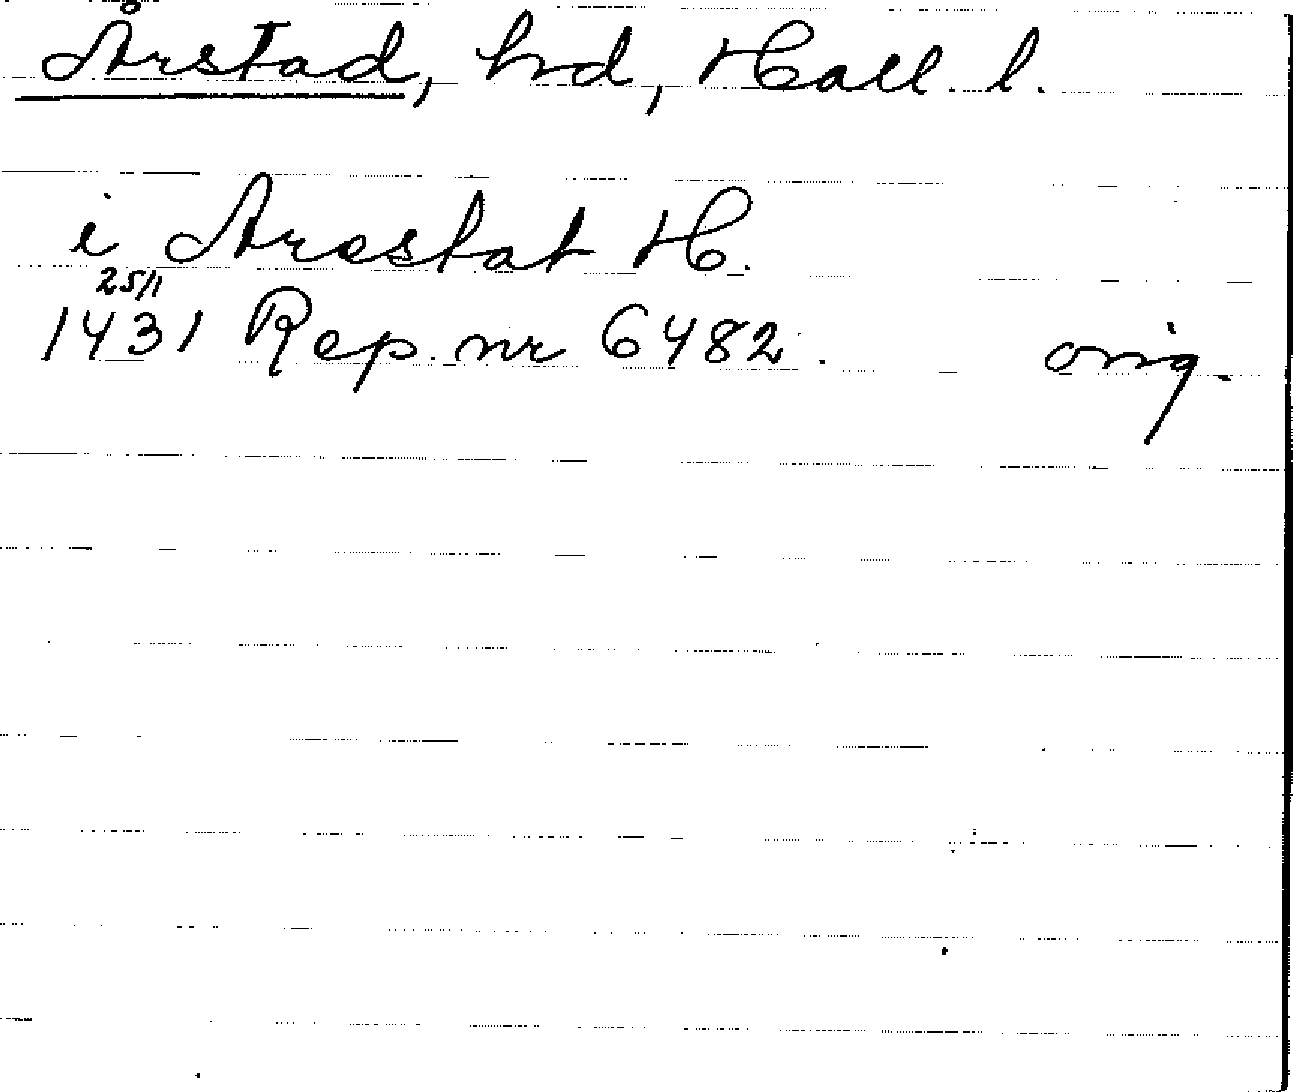 Årstad, hd, Hall. l.
i Arestat H.
25/1
1431 Rep. nr 6482. orig.